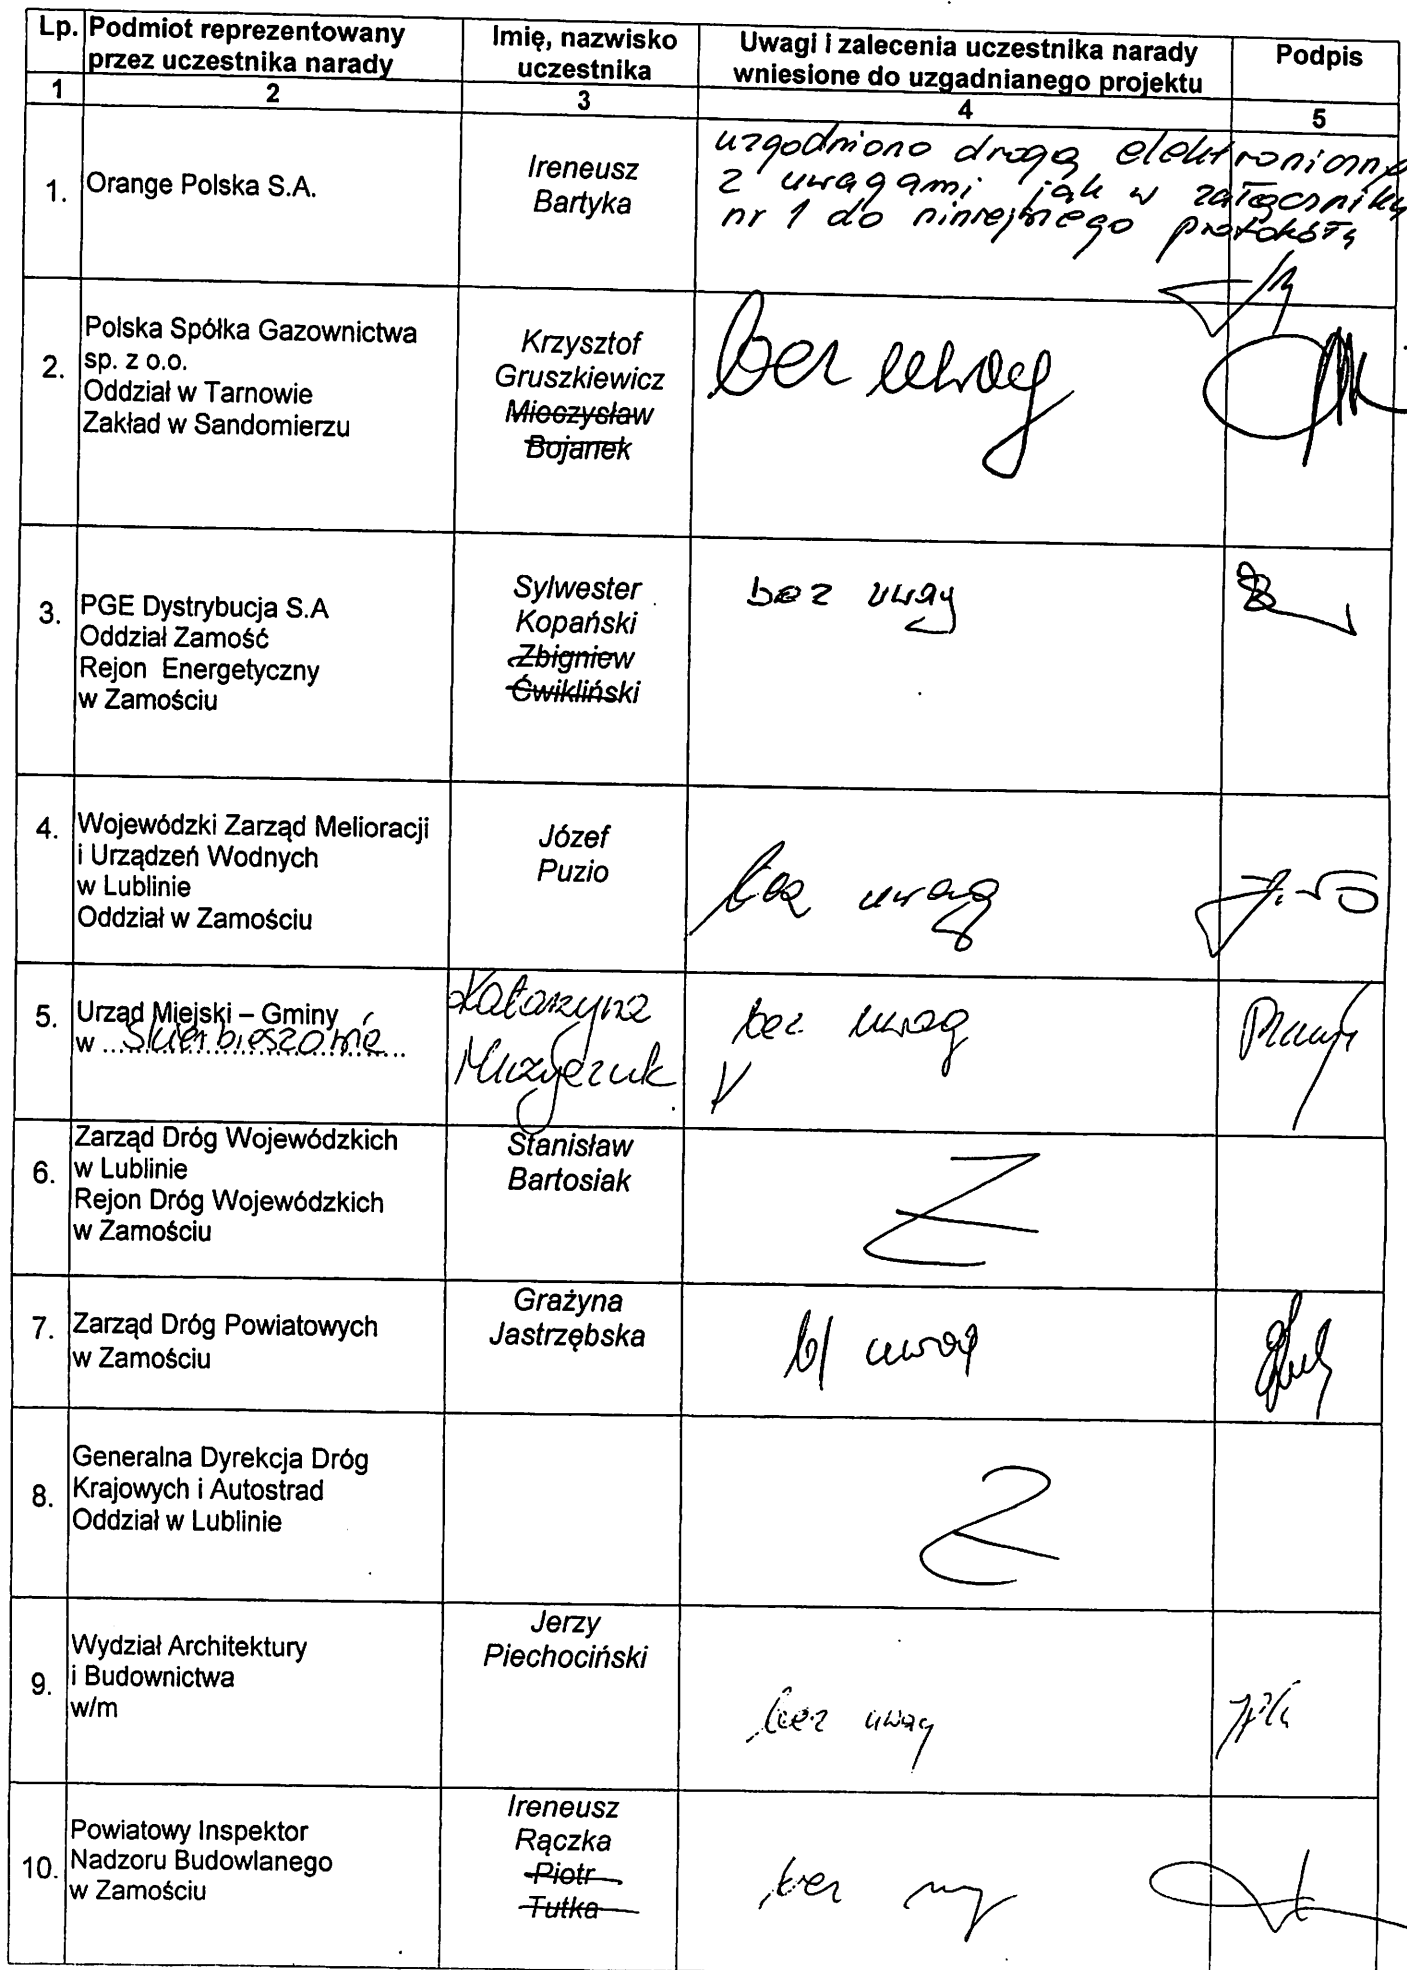 Lp. Podmiot reprezentowany przez uczestnika narady
Imię, nazwisko uczestnika
Uwagi i zalecenia uczestnika narady wniesione do uzgadnianego projektu
Podpis
1 2 3 4 5
1. Orange Polska S.A.
Ireneusz
Bartyka
uzgodniono drogą elektroniczną
z uwagami jak w załączniku
nr 1 do niniejszego protokółu
2. Polska Spółka Gazownictwa
sp. z o.o.
Oddział w Tarnowie
Zakład w Sandomierzu
Krzysztof
Gruszkiewicz
Mieczysław
Bojanek
bez uwag
3. PGE Dystrybucja S.A
Oddział Zamość
Rejon Energetyczny
w Zamościu
Sylwester
Kopański
Zbigniew
Ćwikliński
bez uwag
4. Wojewódzki Zarząd Melioracji
i Urządzeń Wodnych
w Lublinie
Oddział w Zamościu
Józef
Puzio
bez uwag
5. Urząd Miejski – Gminy
w Skierbieszowie
Katarzyna
Muzyczuk
bez uwag
6. Zarząd Dróg Wojewódzkich
w Lublinie
Rejon Dróg Wojewódzkich
w Zamościu
Stanisław
Bartosiak
7. Zarząd Dróg Powiatowych
w Zamościu
Grażyna
Jastrzębska
b/ uwag
8. Generalna Dyrekcja Dróg
Krajowych i Autostrad
Oddział w Lublinie
9. Wydział Architektury
i Budownictwa
w/m
Jerzy
Piechociński
bez uwag
10. Powiatowy Inspektor
Nadzoru Budowlanego
w Zamościu
Ireneusz
Rączka
Piotr
Tutka
bez